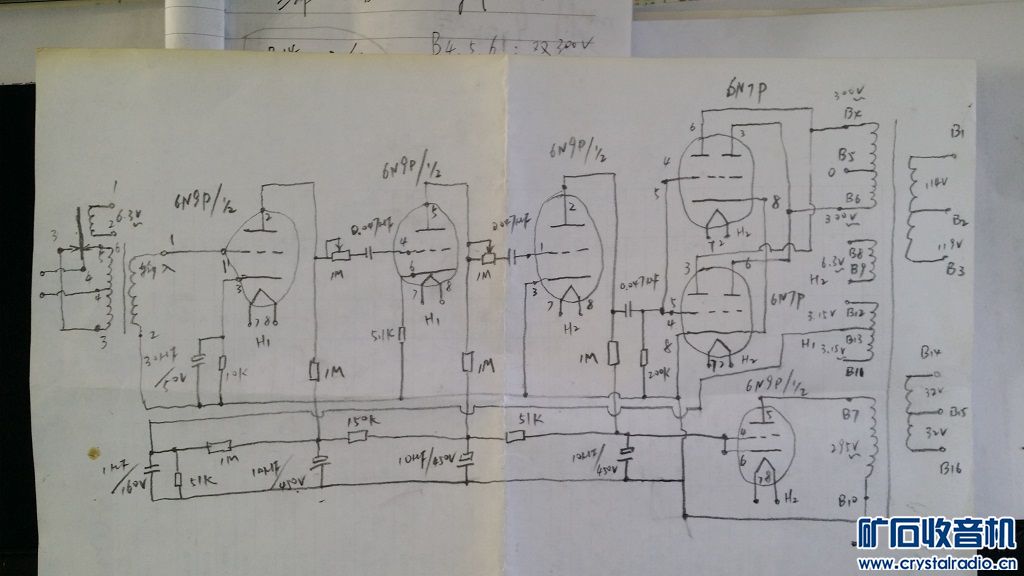 B4.5.6
6N7P
6N9P/½
6N9P/½
6N9P/½
300V
B4
B5
0
B6
300V
B1
118V
B2
119V
B3
1
6.3V
2
3
6
4
4
3
输入
1
2
2
1
3
7 8
H1
0.047μf
1M
5
4
6
7
8
H1
0.047μf
1M
2
1
3
7
8
H2
6
3
4
5
8
7 2
H2
3
6
5
4
8
7 2
H2
6N7P
0.047μf
B8
6.3V
B9
H2
B12
3.15V
H1
B13
3.15V
B11
30μf/50V
10K
1M
51K
1M
1M
200K
6N9P/½
5
4
6
7 8
H2
B7
295V
B10
B14
32V
B15
32V
B16
150K
51K
1M
1μf/160V
51K
10μf/450V
10μf/450V
10μf/450V
矿石收音机
www.crystalradio.cn